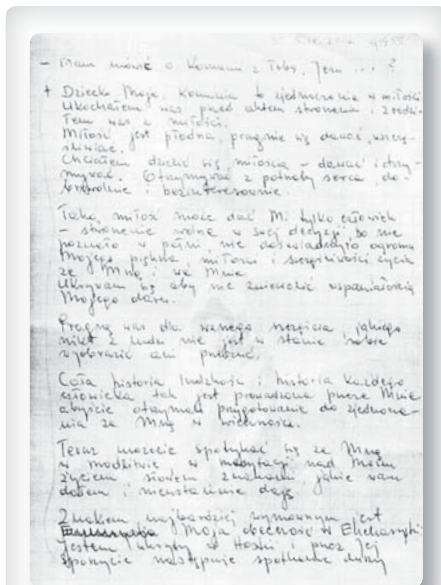 – Mam mówić o Komunii z Tobą, Jezu ... ?
+ Dziecko Moje, komunia to zjednoczenie w miłości.
Ukochałem was przed aktem stworzenia i zrodzi-
łem was z miłości.
Miłość jest płodna, pragnie się dawać, uszczę-
śliwiać.
Chciałem dzielić się miłością – dawać i otrzy-
mywać. Otrzymywać z potrzeby serca, do-
browolnie i bezinteresownie.
Taką miłość może dać Mi tylko człowiek
– stworzenie wolne w swej decyzji, bo nie
poznało w pełni, nie doświadczyło ogromu
Mojego piękna, miłości i szczęśliwości życia
ze Mną i we Mnie.
Ukrywam się aby nie zniewolić wspaniałością
Mojego daru.
Pragnę was dla waszego szczęścia, jakiego
nikt z ludzi nie jest w stanie sobie
wyobrazić ani przeczuć.
Cała historia ludzkości i historia każdego
człowieka tak jest prowadzona przeze Mnie
abyście otrzymali przygotowanie do zjednocze-
nia ze Mną w wieczności.
Teraz możecie spotykać się ze Mną
w modlitwie w medytacji nad Moim
życiem słowem znakami, jakie wam
dałem i nieustannie daję.
Znakiem najbardziej wymownym jest
Moja obecność w Eucharystii.
Jestem ukryty w Hostii i przez jej
spożycie następuje spotkanie duszy